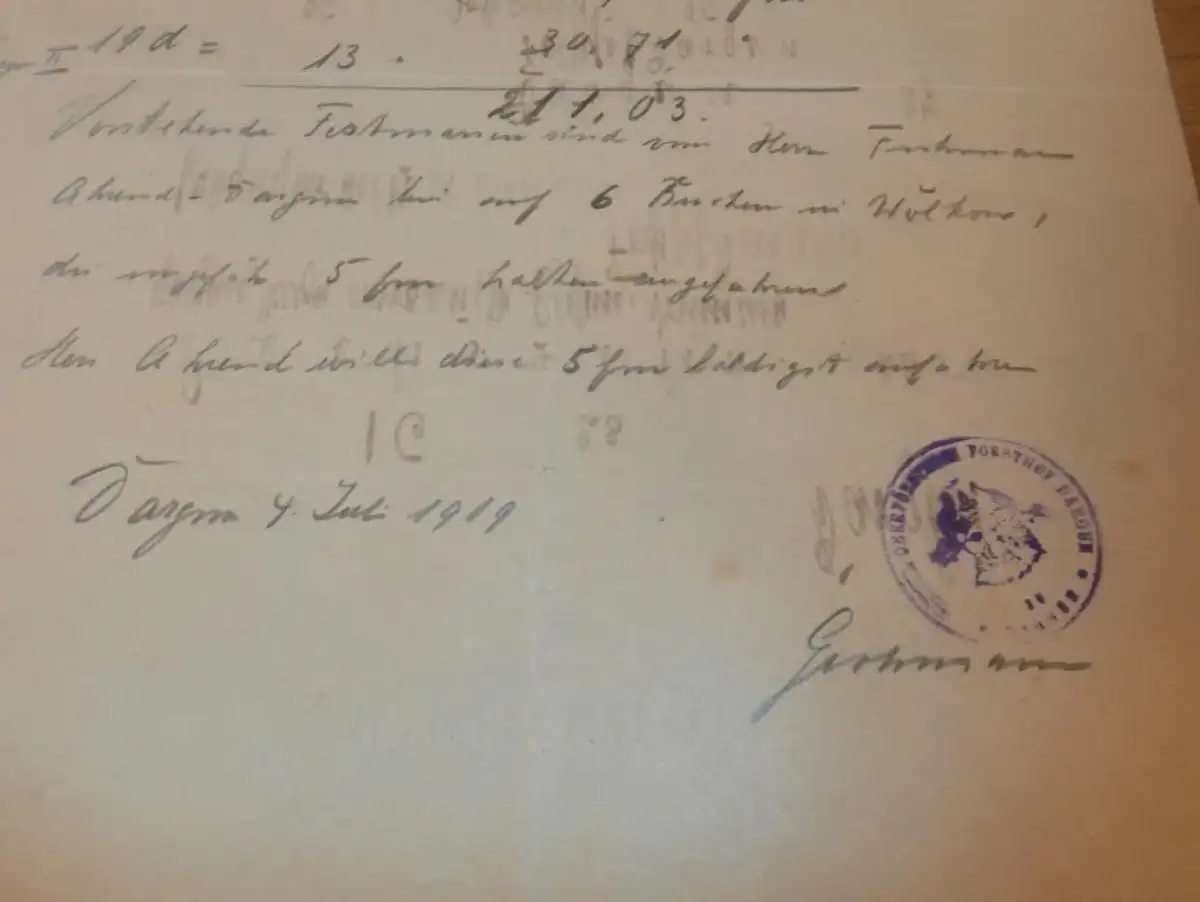 II 19 d = 13. 30,71
211,03.
Vorstehende Festmassen sind von Herrn Fuhrmann
Ahrend-Dargun bis auf 6 Buchen in Wolkow,
die ungefähr 5 fm halten angefahren
Herr Ahrend will diese 5 fm baldigst anfahren
Dargun 4. Juli 1919
OBERFÖRSTEREI FORSTHOF DARGUN
Grohmann